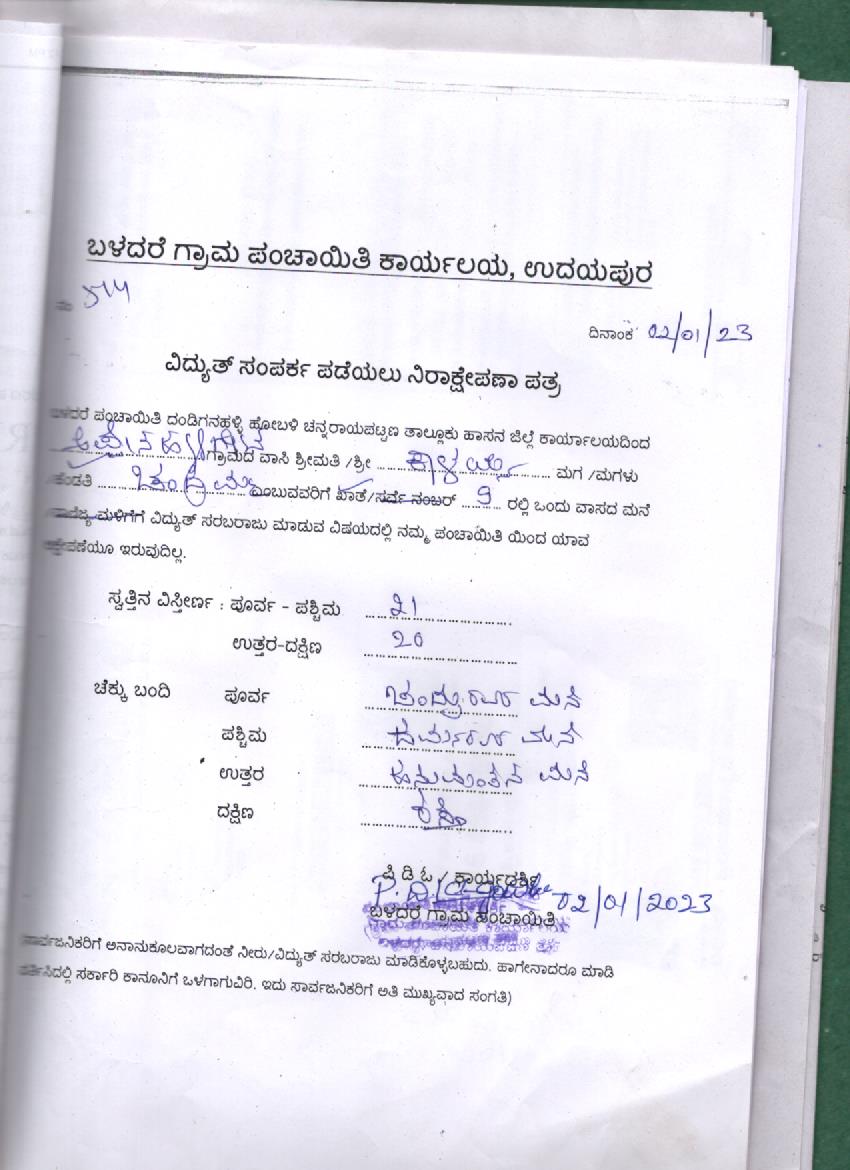 ಬಳದರೆ ಗ್ರಾಮ ಪಂಚಾಯಿತಿ ಕಾರ್ಯಲಯ, ಉದಯಪುರ
ನಂ 514
ದಿನಾಂಕ 02/01/23
ವಿದ್ಯುತ್ ಸಂಪರ್ಕ ಪಡೆಯಲು ನಿರಾಕ್ಷೇಪಣಾ ಪತ್ರ
ಬಳದರೆ ಪಂಚಾಯಿತಿ ದಂಡಿಗನಹಳ್ಳಿ ಹೋಬಳಿ ಚನ್ನರಾಯಪಟ್ಟಣ ತಾಲ್ಲೂಕು ಹಾಸನ ಜಿಲ್ಲೆ ಕಾರ್ಯಾಲಯದಿಂದ
ಗ್ರಾಮದ ವಾಸಿ ಶ್ರೀಮತಿ /ಶ್ರೀ ಕಾಳಯ್ಯ ಮಗ /ಮಗಳು
/ಹೆಂಡತಿ ಎಂಬುವವರಿಗೆ ಖಾತೆ/ಸರ್ವೆ ನಂಬರ್ 9 ರಲ್ಲಿ ಒಂದು ವಾಸದ ಮನೆ
ಮಳಿಗೆಗೆ ವಿದ್ಯುತ್ ಸರಬರಾಜು ಮಾಡುವ ವಿಷಯದಲ್ಲಿ ನಮ್ಮ ಪಂಚಾಯಿತಿ ಯಿಂದ ಯಾವ
ಕ್ಷೇಪಣೆಯೂ ಇರುವುದಿಲ್ಲ.
ಸ್ವತ್ತಿನ ವಿಸ್ತೀರ್ಣ : ಪೂರ್ವ - ಪಶ್ಚಿಮ 21
ಉತ್ತರ-ದಕ್ಷಿಣ 20
ಚೆಕ್ಕು ಬಂದಿ ಪೂರ್ವ ಮನೆ
ಪಶ್ಚಿಮ ಮನೆ
ಉತ್ತರ ಹನುಮಂತನ ಮನೆ
ದಕ್ಷಿಣ ರಸ್ತೆ
ಪಿ ಡಿ ಓ / ಕಾರ್ಯದರ್ಶಿ
02/01/2023
ಬಳದರೆ ಗ್ರಾಮ ಪಂಚಾಯಿತಿ
ಸಾರ್ವಜನಿಕರಿಗೆ ಅನಾನುಕೂಲವಾಗದಂತೆ ನೀರು/ವಿದ್ಯುತ್ ಸರಬರಾಜು ಮಾಡಿಕೊಳ್ಳಬಹುದು. ಹಾಗೇನಾದರೂ ಮಾಡಿ
ಸರ್ಕಾರಿ ಕಾನೂನಿಗೆ ಒಳಗಾಗುವಿರಿ. ಇದು ಸಾರ್ವಜನಿಕರಿಗೆ ಅತಿ ಮುಖ್ಯವಾದ ಸಂಗತಿ)